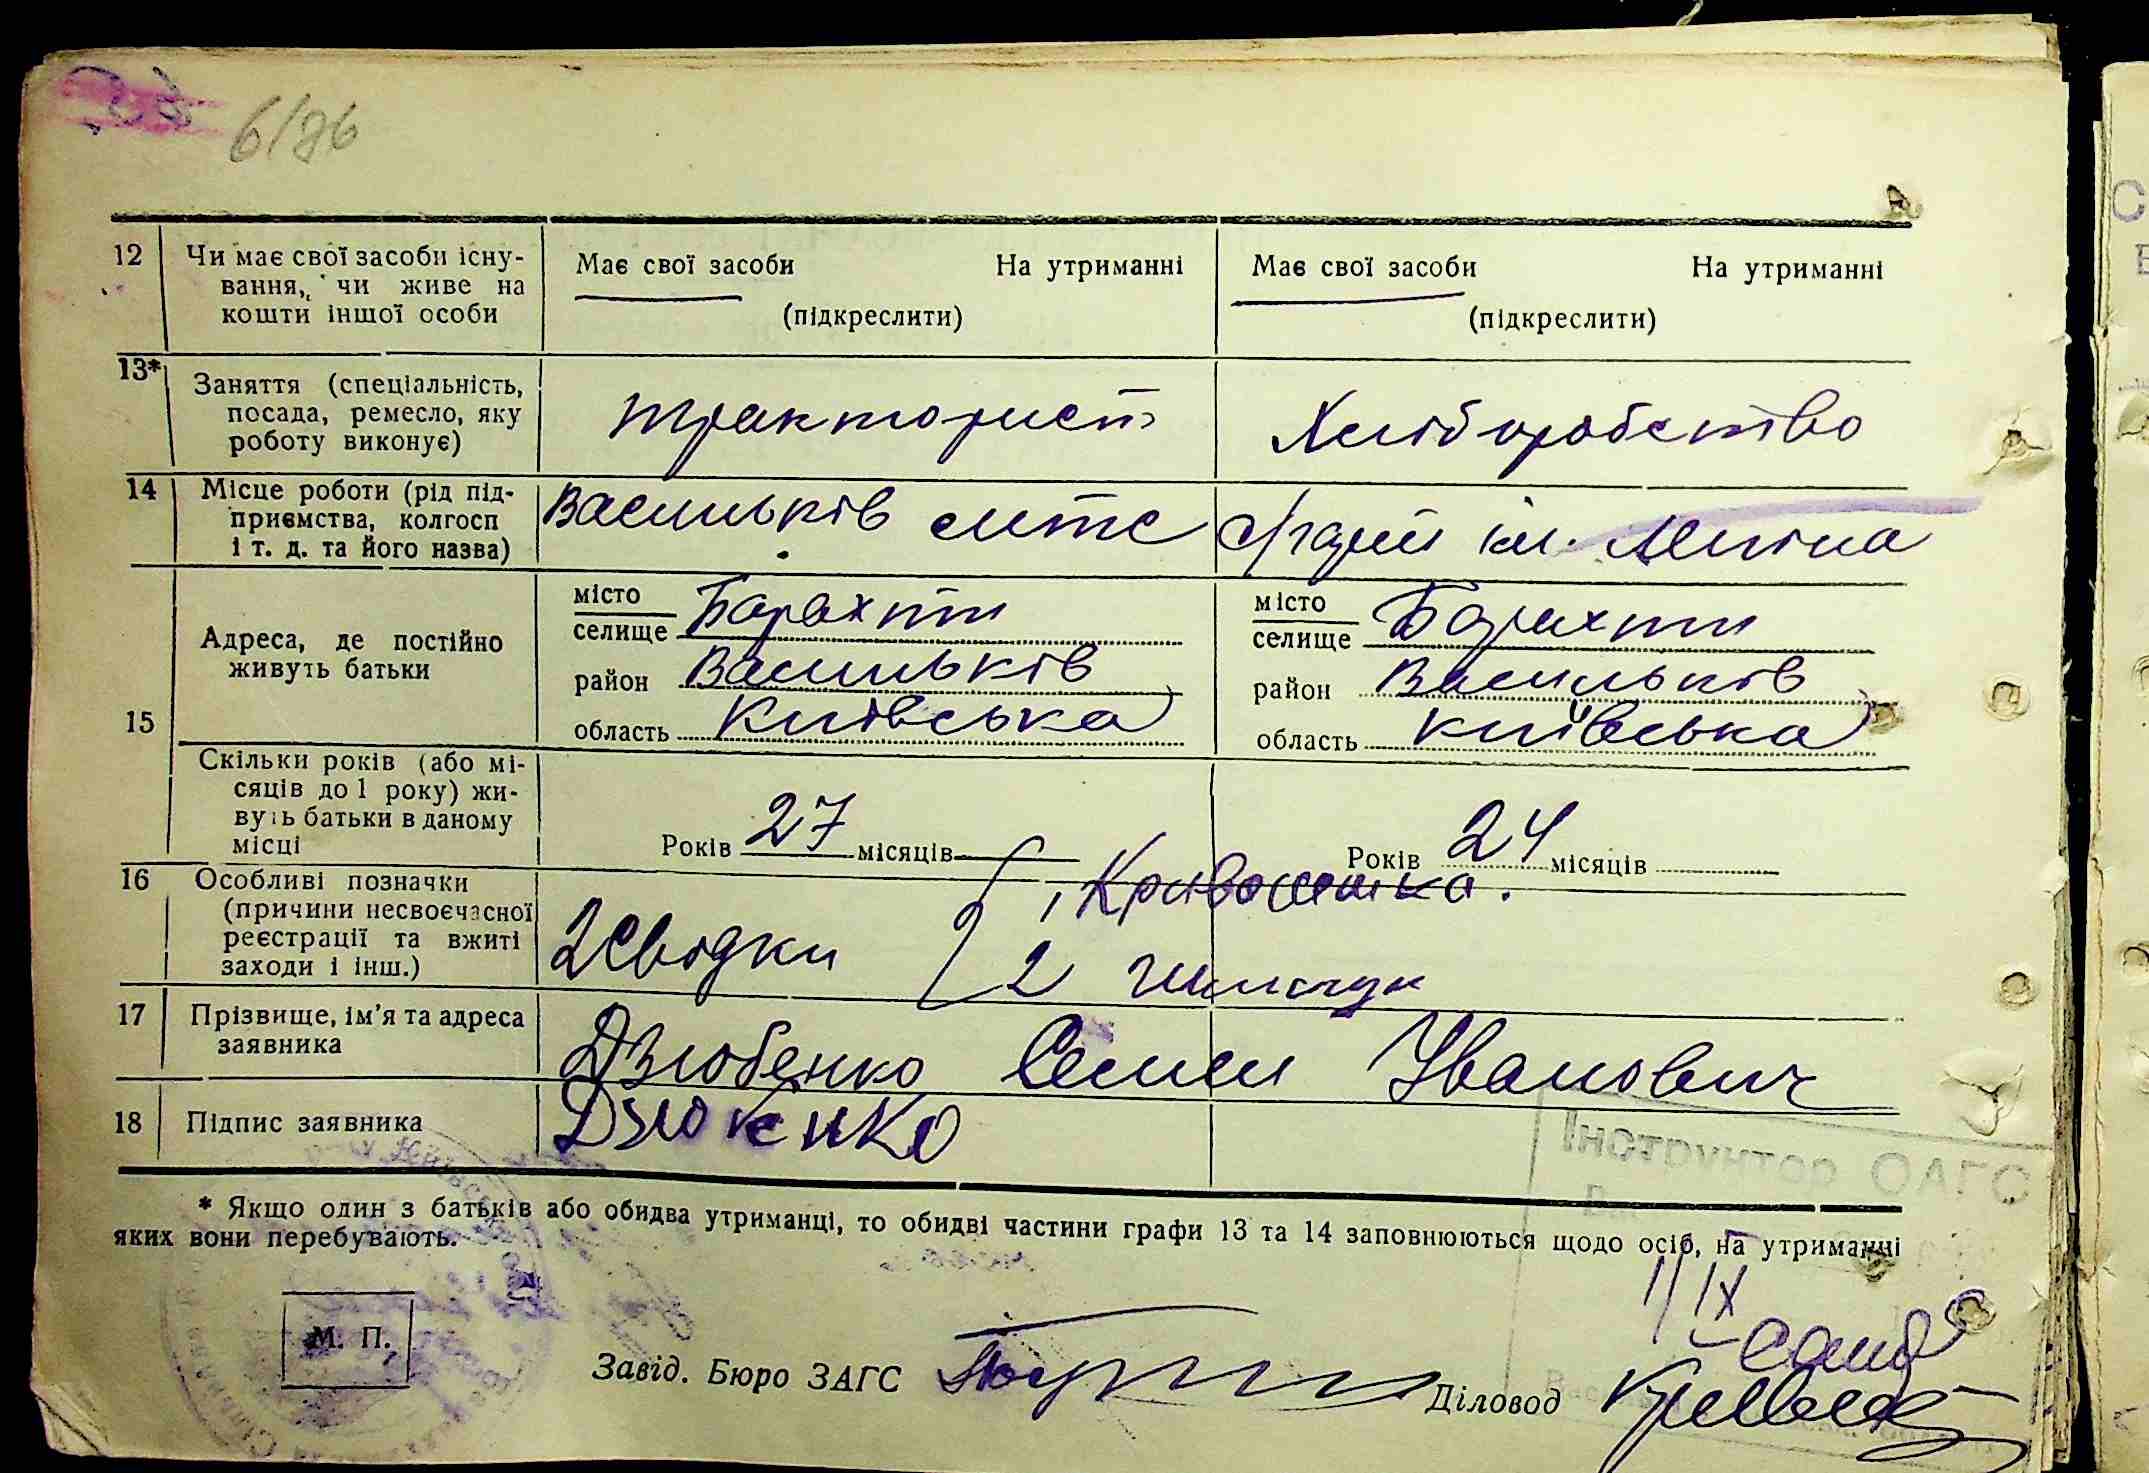 6/86
12 Чи має свої засоби існу-
вання, чи живе на
кошти іншої особи
Має свої засоби На утриманні
(підкреслити)
Має свої засоби На утриманні
(підкреслити)
13* Заняття (спеціальність,
посада, ремесло, яку
роботу виконує)
тракторист
Хліборобство
14 Місце роботи (рід під-
приємства, колгосп
і т. д. та його назва)
Васильків смтс
Артіль ім. Леніна
15 Адреса, де постійно
живуть батьки
місто
селище Барахти
район Васильків
область Київська
місто
селище Барахти
район Васильків
область Київська
Скільки років (або мі-
сяців до 1 року) жи-
вуть батьки в даному
місці
Років 27 місяців
Років 24 місяців
16 Особливі позначки
(причини несвоєчасної
реєстрації та вжиті
заходи і інш.)
2 свідки
1 Кривошика.
2
17 Прізвище, ім'я та адреса
заявника
Дзюбенко Семен Іванович
18 Підпис заявника
Дзюбенко
* Якщо один з батьків або обидва утриманці, то обидві частини графи 13 та 14 заповнюються щодо осіб, на утриманні
яких вони перебувають.
Інструктор ОАГС
11/IX
М. П.
Завід. Бюро ЗАГС
Діловод